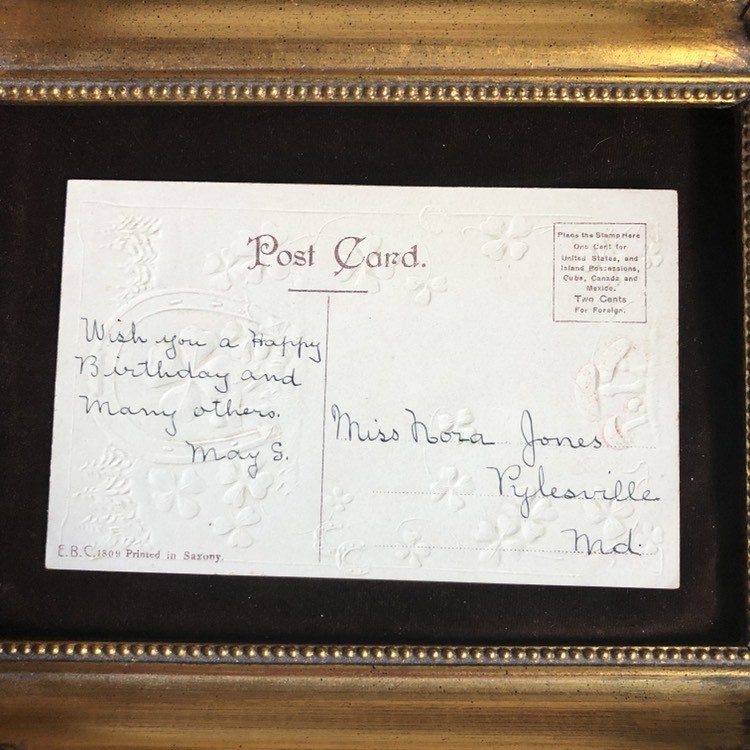 Post Card.
Place the Stamp Here
One Cent for
United States, and
Island Possessions,
Cuba, Canada and
Mexico.
Two Cents
For Foreign.
Wish you a Happy
Birthday and
Many others.
May S.
Miss Nora Jones
Pylesville
Md.
E.B.C. 1809 Printed in Saxony.